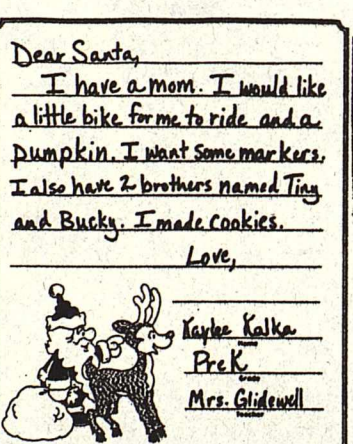 Dear Santa,
I have a mom. I would like
a little bike for me to ride and a
pumpkin. I want some markers.
I also have 2 brothers named Tiny
and Bucky. I made cookies.
Love,
Kaylee Kalka
Name
PreK
Grade
Mrs. Glidewell
Teacher